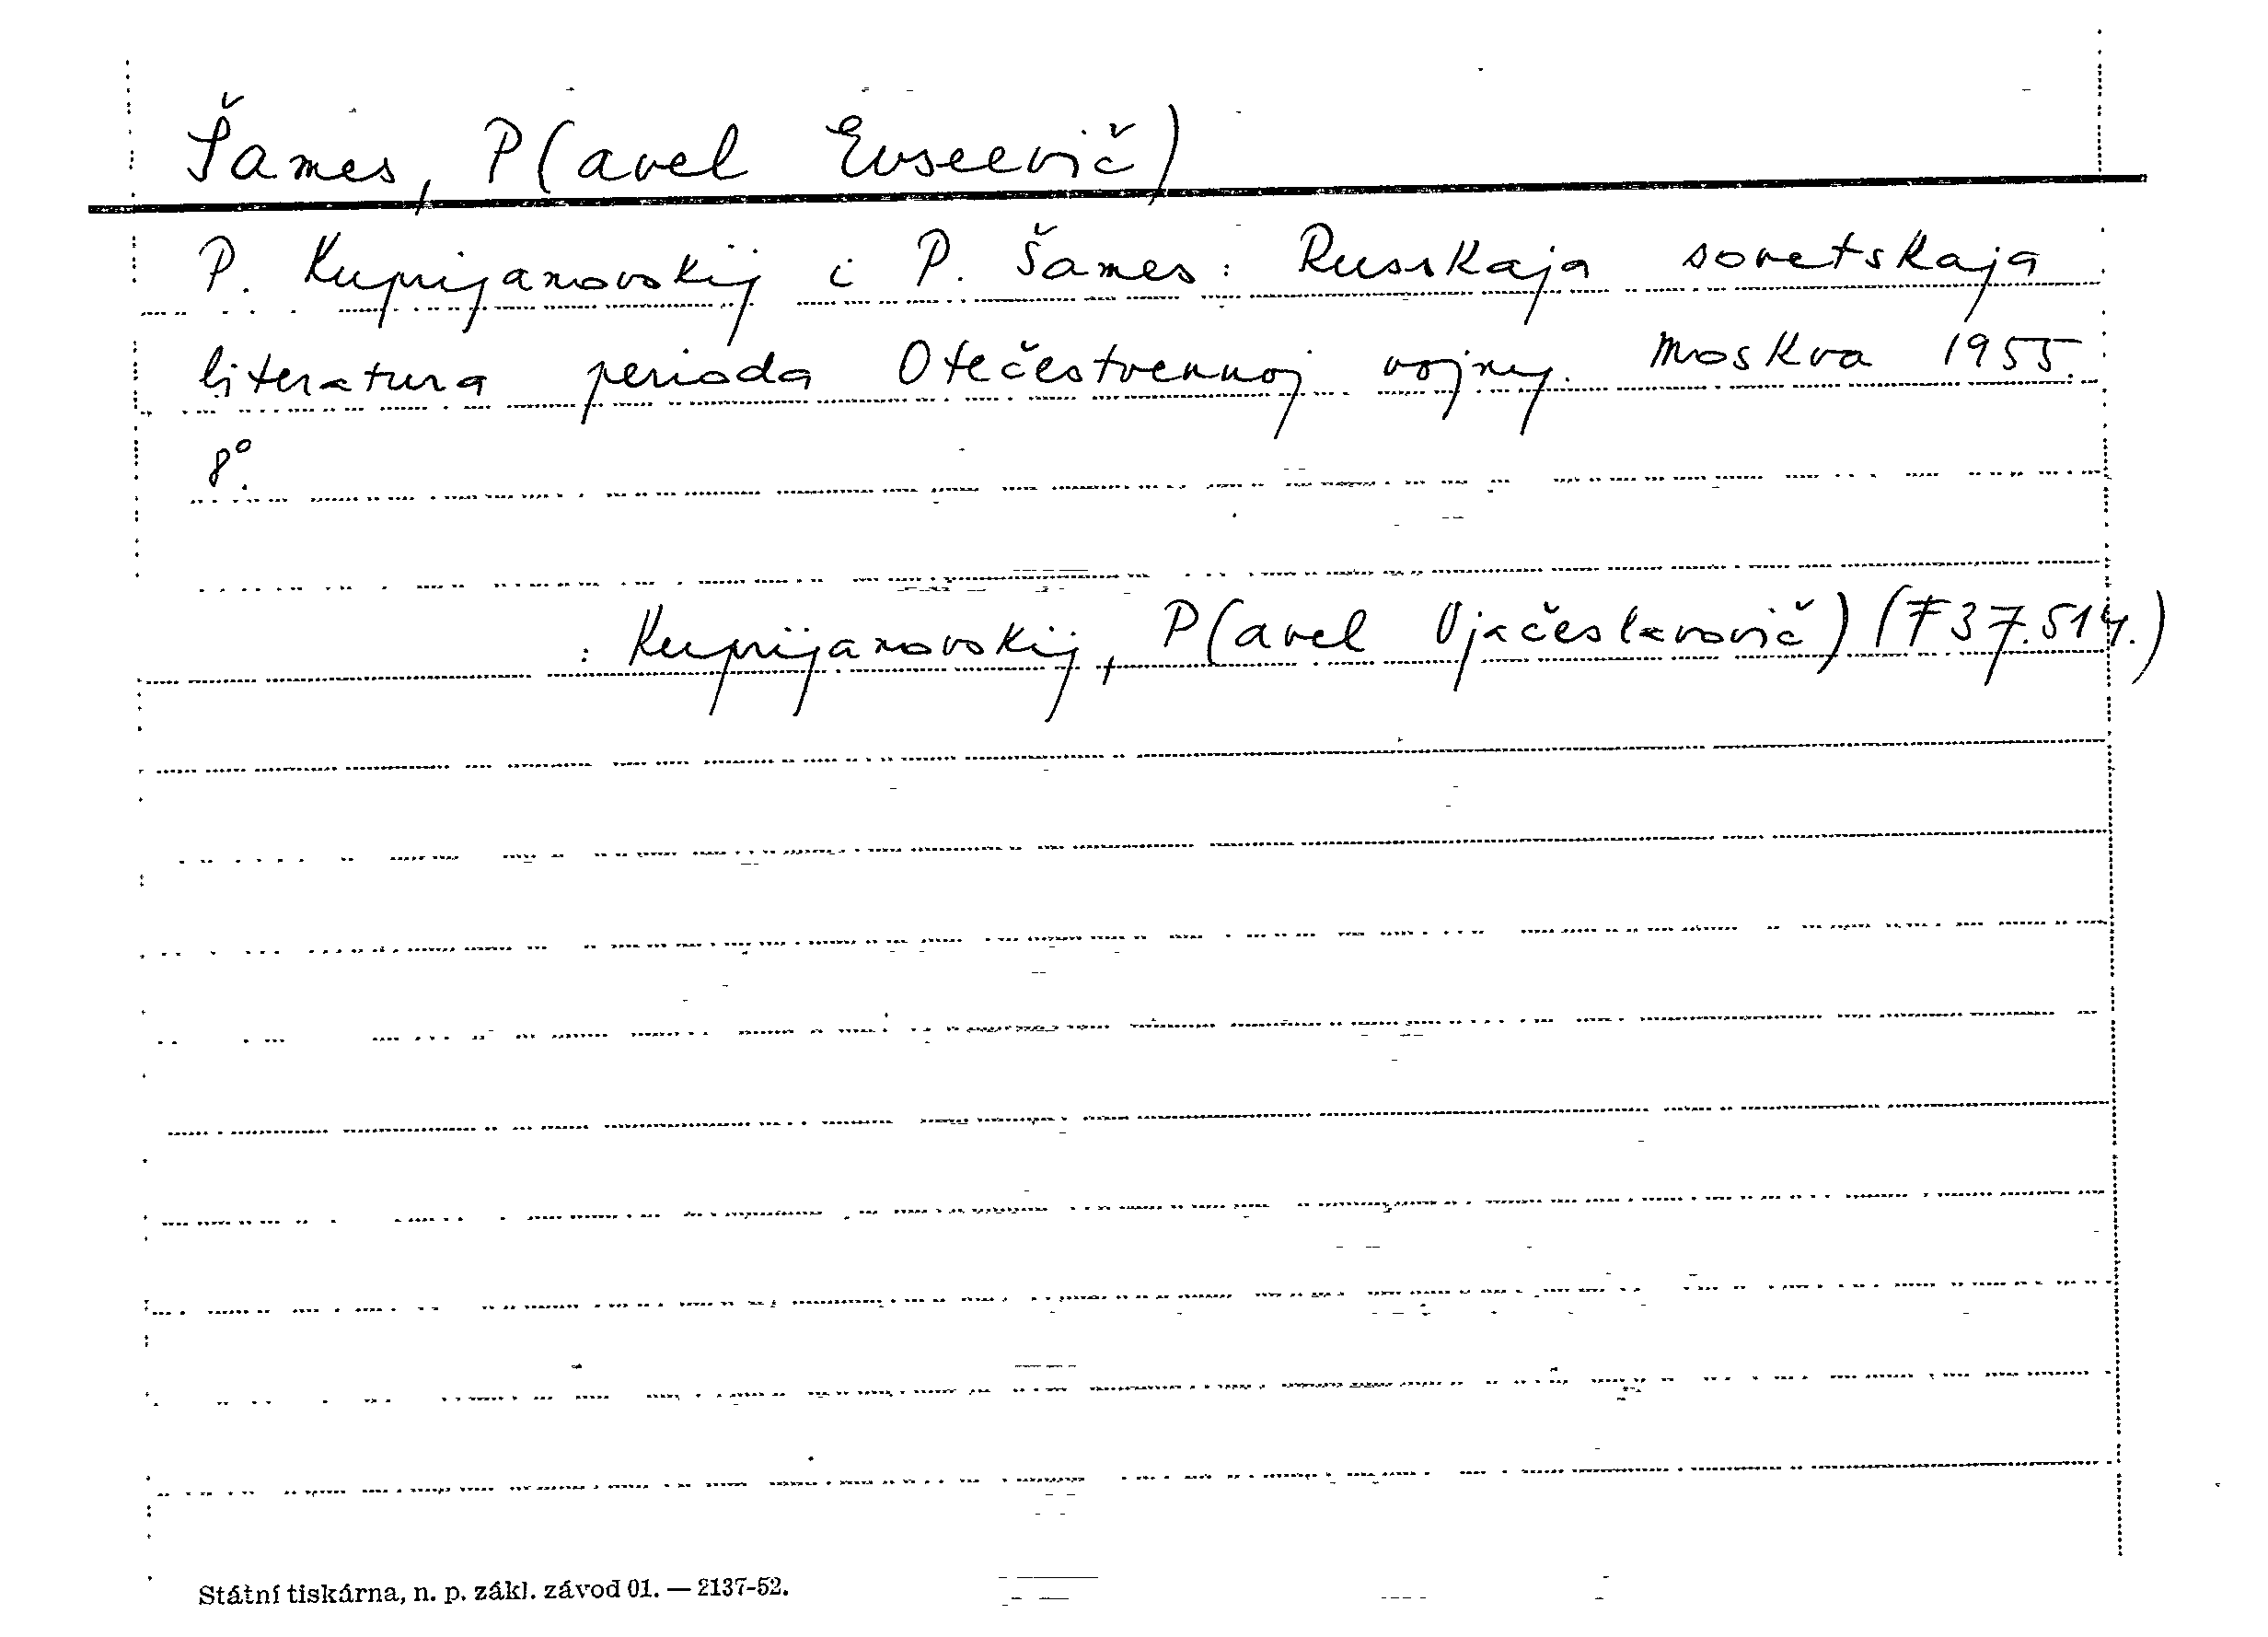 Šames, P(avel Evseevič)
P. Kuprijanovskij i P. Šames: Russkaja sovetskaja
literatura perioda Otečestvennoj vojny. Moskva 1955.
8°.
: Kuprijanovskij, P(avel Vjačeslavovič) (F 37.514.)
Státní tiskárna, n. p. zákl. závod 01. — 2137-52.